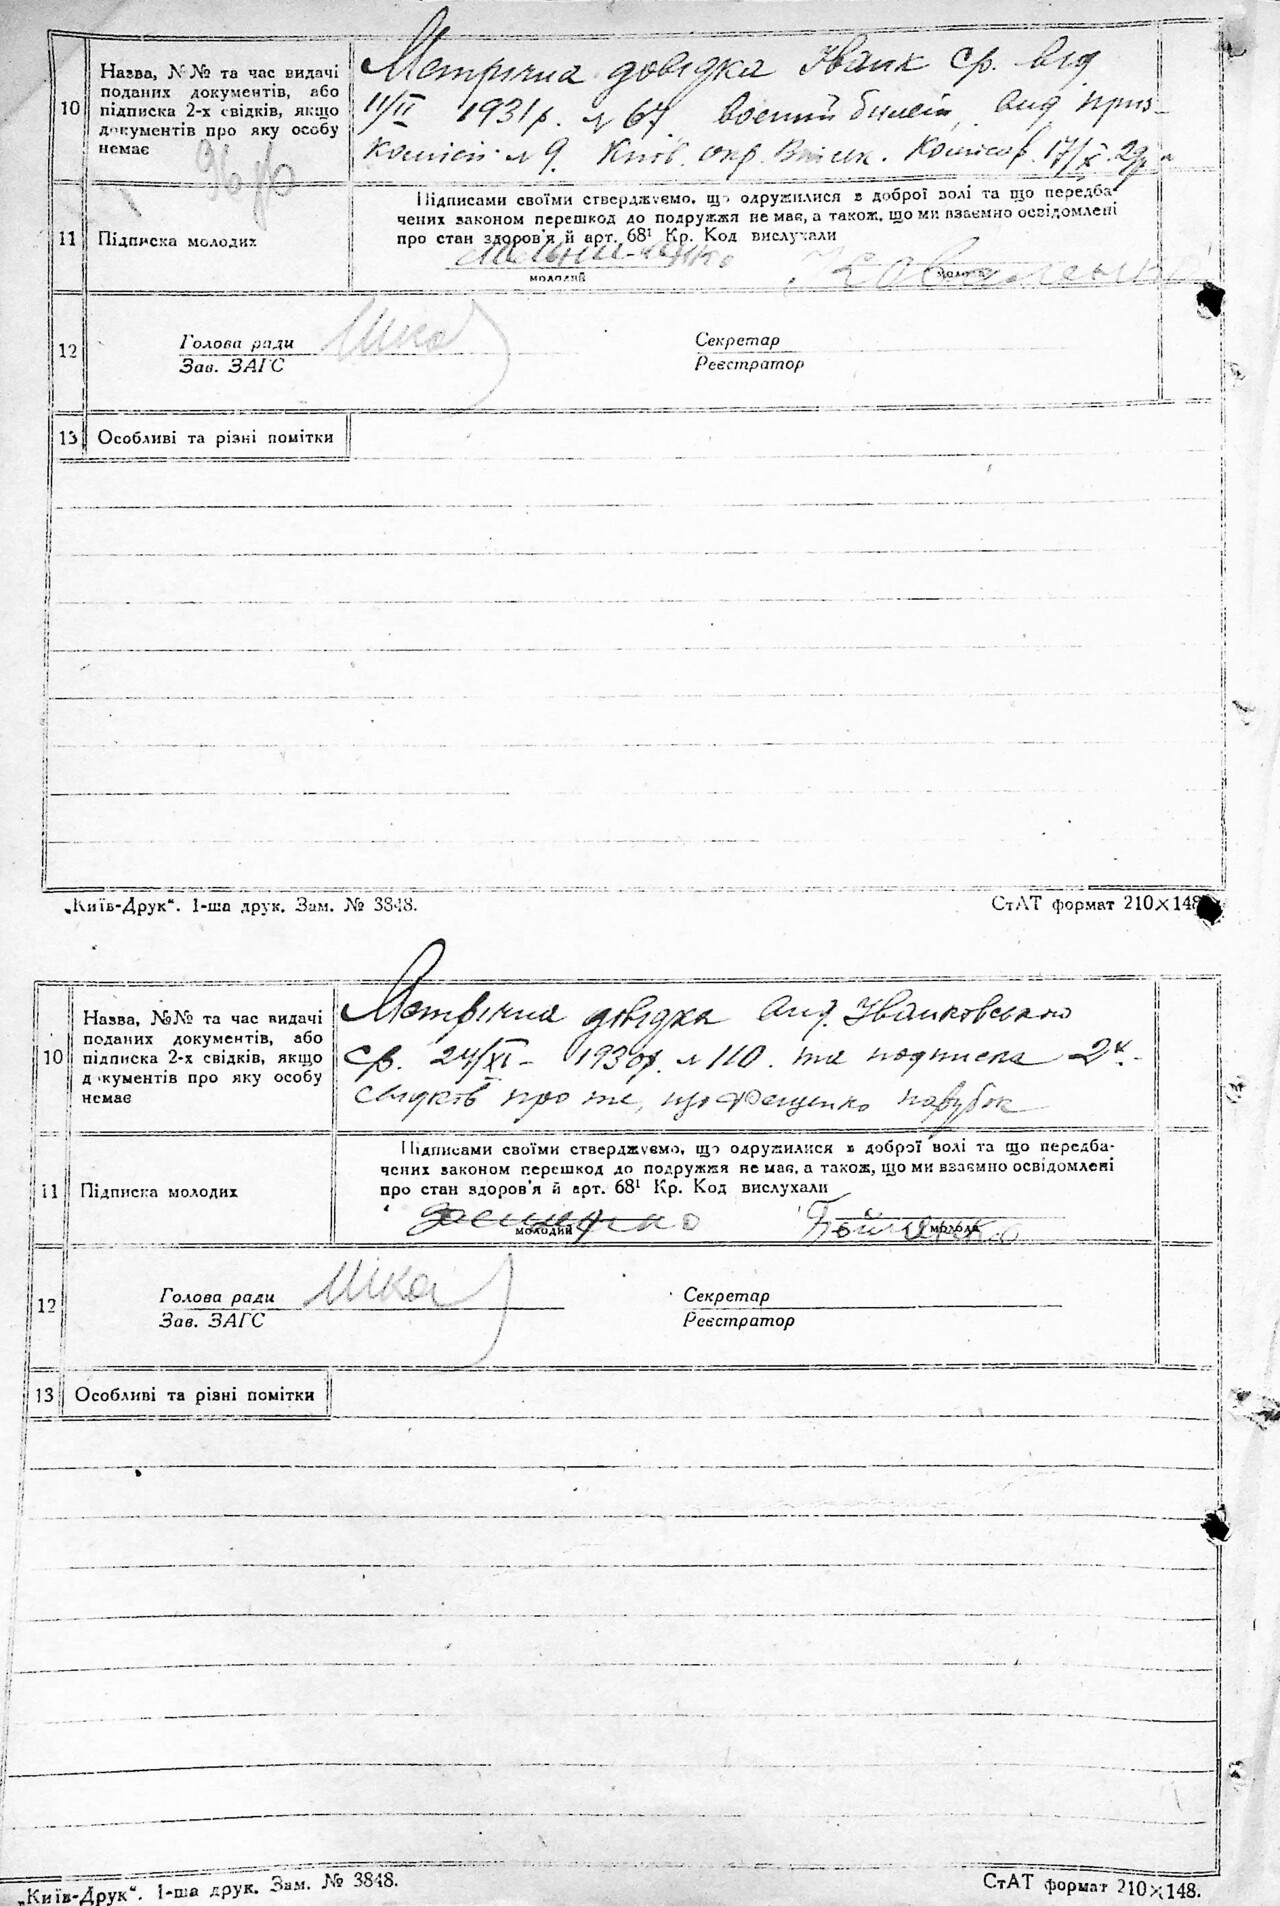 10
Назва, №№ та час видачі
поданих документів, або
підписка 2-х свідків, якщо
документів про яку особу
немає
Метрична довідка Іванк ср. від
11/II 1931р. № 67 воєний билет, вид приз-
комісії № 9. Київ. окр. Військ. Комісар. 17/X 29р
11
Підписка молодих
Підписами своїми стверджуємо, що одружилися в доброї волі та що передба-
чених законом перешкод до подружжя не має, а також, що ми взаємно освідомлені
про стан здоров'я й арт. 68¹ Кр. Код вислухали
Коваленко
молодий
молода
12
Голова ради
Зав. ЗАГС
Секретар
Реєстратор
13
Особливі та різні помітки
„Київ-Друк“. 1-ша друк. Зам. № 3848.
СтАТ формат 210×148.
10
Назва, №№ та час видачі
поданих документів, або
підписка 2-х свідків, якщо
документів про яку особу
немає
Метрична довідка вид. Іванковською
ср. 24/XI - 1930р. № 110. та подписка 2х-
свидків про те, що Фещенко парубок
11
Підписка молодих
Підписами своїми стверджуємо, що одружилися в доброї волі та що передба-
чених законом перешкод до подружжя не має, а також, що ми взаємно освідомлені
про стан здоров'я й арт. 68¹ Кр. Код вислухали
молодий
молода
12
Голова ради
Зав. ЗАГС
Секретар
Реєстратор
13
Особливі та різні помітки
„Київ-Друк“. 1-ша друк. Зам. № 3848.
СтАТ формат 210×148.